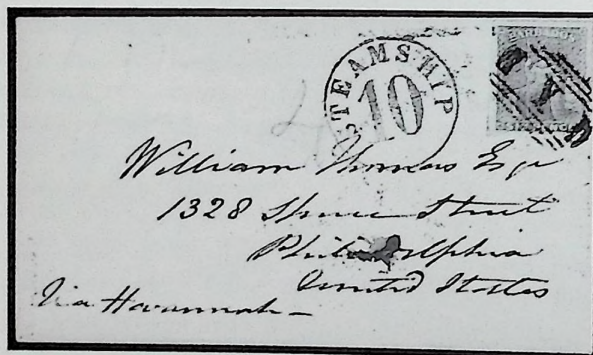 BARBADOS
STEAMSHIP
10
William Thomas Esqr
1328 Spruce Street
Philadelphia
United States
Via Havannah